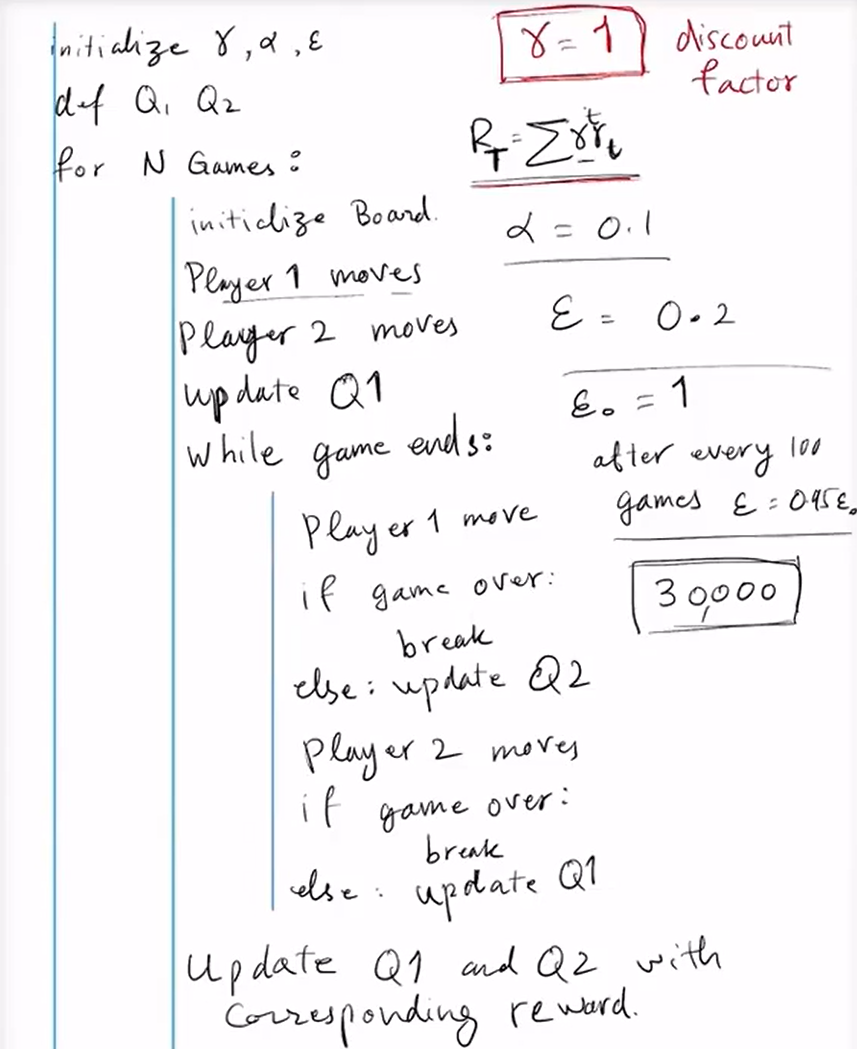 initialize γ, α, ε
def Q1 Q2
for N Games:
initialize Board.
Player 1 moves
Player 2 moves
update Q1
While game ends:
Player 1 move
if game over:
break
else: update Q2
Player 2 moves
if game over:
break
else: update Q1
Update Q1 and Q2 with
Corresponding reward.
γ = 1 discount
factor
R_T = Σ γ^t r_t
α = 0.1
ε = 0.2
ε₀ = 1
after every 100
games ε = 0.95ε₀
30,000